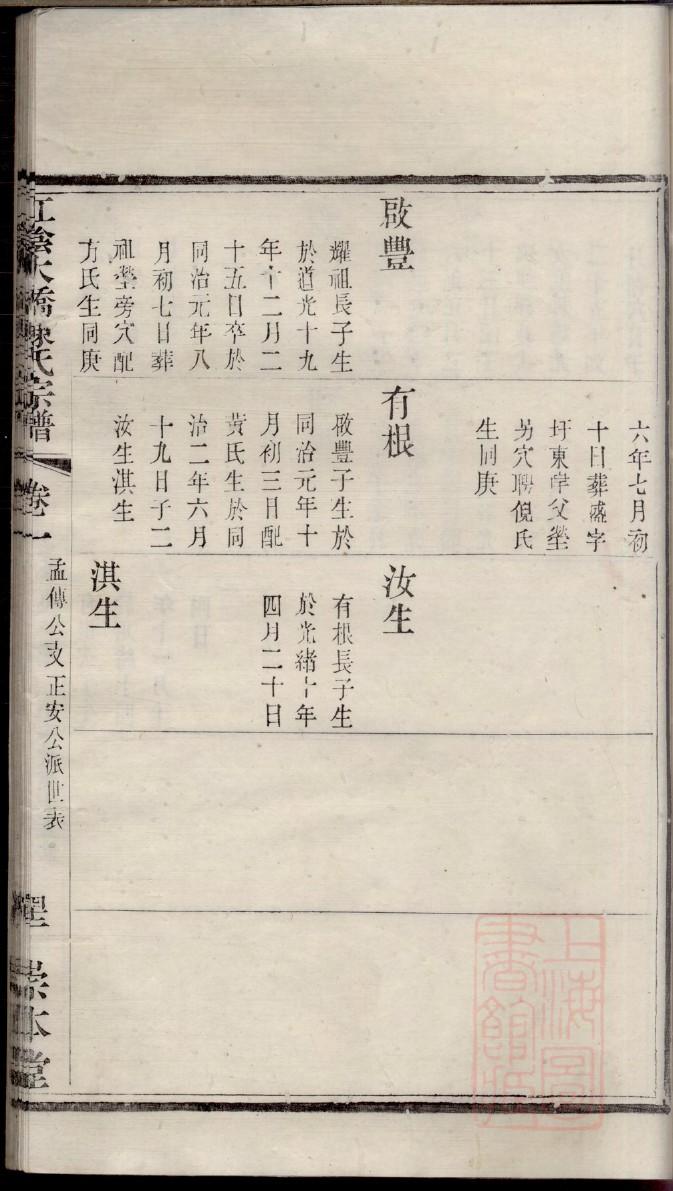 六年七月初
十日葬盛字
圩東皐父塋
另穴聘倪氏
生同庚
啟豐
耀祖長子生
於道光十九
年十二月二
十五日卒於
同治元年八
月初七日葬
祖塋旁穴配
方氏生同庚
有根
啟豐子生於
同治元年十
月初三日配
黃氏生於同
治二年六月
十九日子二
汝生淇生
汝生
有根長子生
於光緒十年
四月二十日
淇生
江陰大橋陳氏宗譜
卷一
孟傳公支正安公派世表
崇本堂
上海圖書館藏